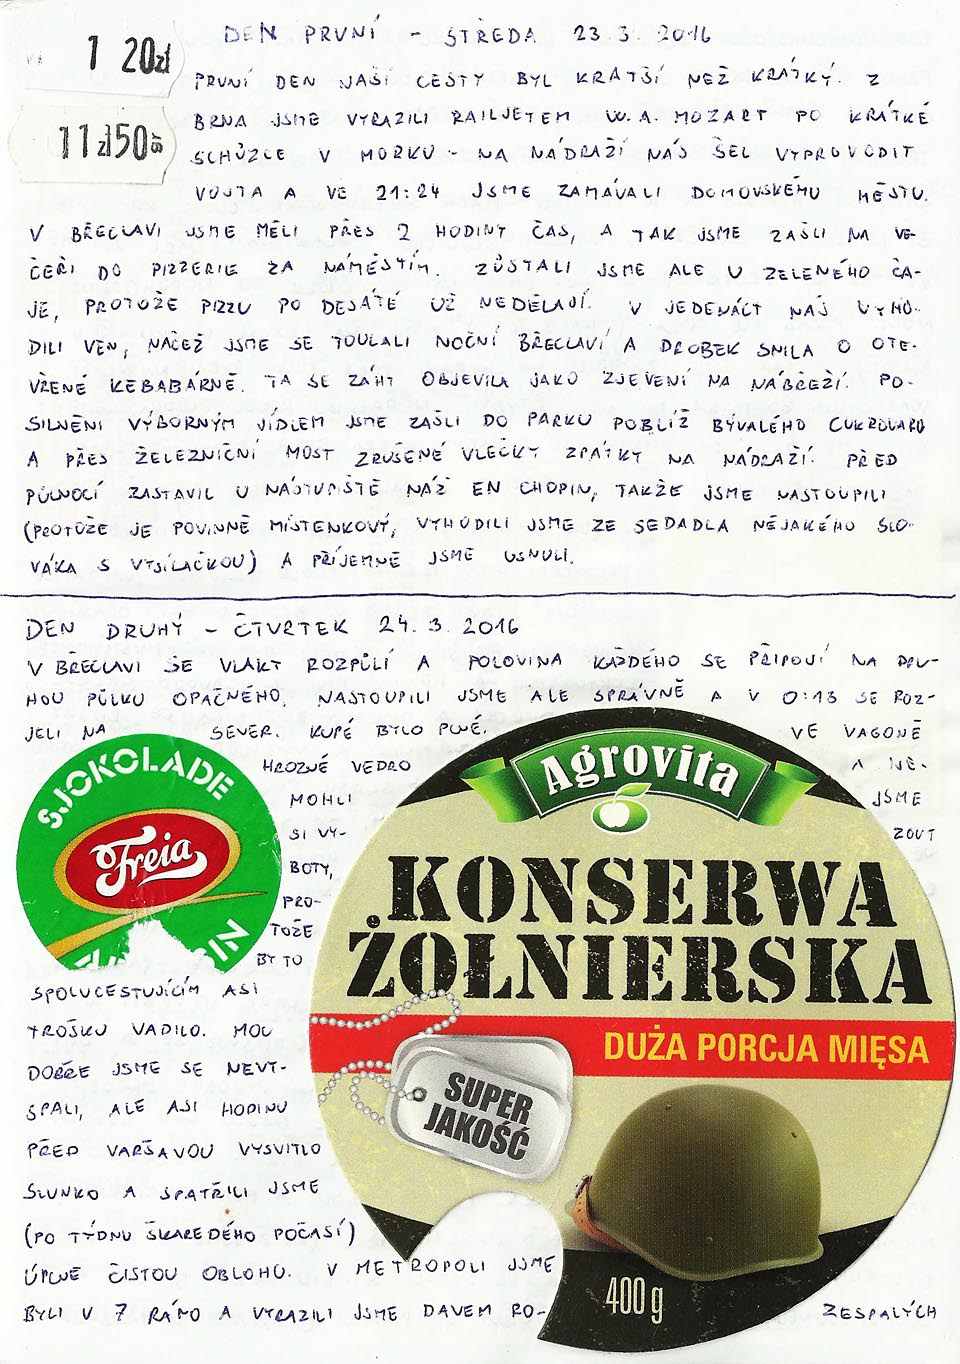 1 20zł
11zł50gr
DEN PRVNÍ - STŘEDA 23.3.2016
PRVNÍ DEN NAŠÍ CESTY BYL KRATŠÍ NEŽ KRÁTKÝ. Z
BRNA JSME VYRAZILI RAILJETEM W.A. MOZART PO KRÁTKÉ
SCHŮZCE V MORKU - NA NÁDRAŽÍ NÁS ŠEL VYPROVODIT
VOJTA A VE 21:24 JSME ZAMÁVALI DOMOVSKÉMU MĚSTU.
V BŘECLAVI JSME MĚLI PŘES 2 HODINY ČAS, A TAK JSME ZAŠLI NA VE-
ČEŘI DO PIZZERIE ZA NÁMĚSTÍM. ZŮSTALI JSME ALE U ZELENÉHO ČA-
JE, PROTOŽE PIZZU PO DESÁTÉ UŽ NEDĚLAJÍ. V JEDENÁCT NÁS VYHO-
DILI VEN, NAČEŽ JSME SE TOULALI NOČNÍ BŘECLAVÍ A DROBEK SNILA O OTE-
VŘENÉ KEBABÁRNĚ. TA SE ZÁHY OBJEVILA JAKO ZJEVENÍ NA NÁBŘEŽÍ. PO-
SILNĚNI VÝBORNÝM JÍDLEM JSME ZAŠLI DO PARKU POBLÍŽ BÝVALÉHO CUKROVARU
A PŘES ŽELEZNIČNÍ MOST ZRUŠENÉ VLEČKY ZPÁTKY NA NÁDRAŽÍ. PŘED
PŮLNOCÍ ZASTAVIL U NÁSTUPIŠTĚ NÁŠ EN CHOPIN, TAKŽE JSME NASTOUPILI
(PROTOŽE JE POVINNĚ MÍSTENKOVÝ, VYHODILI JSME ZE SEDADLA NĚJAKÉHO SLO-
VÁKA S VYSÍLAČKOU) A PŘÍJEMNĚ JSME USNULI.
DEN DRUHÝ - ČTVRTEK 24.3.2016
V BŘECLAVI SE VLAKY ROZPŮLÍ A POLOVINA KAŽDÉHO SE PŘIPOJÍ NA DRU-
HOU PŮLKU OPAČNÉHO. NASTOUPILI JSME ALE SPRÁVNĚ A V 0:13 SE ROZ-
JELI NA SEVER. KUPÉ BYLO PLNÉ. VE VAGONĚ
HROZNÉ VEDRO A NE-
MOHLI JSME
SI VY- ZOUT
BOTY,
PRO-
TOŽE
BY TO
SPOLUCESTUJÍCÍM ASI
TROŠKU VADILO. MOC
DOBŘE JSME SE NEVY-
SPALI, ALE ASI HODINU
PŘED VARŠAVOU VYSVITLO
SLUNKO A SPATŘILI JSME
(PO TÝDNU ŠKAREDÉHO POČASÍ)
ÚPLNĚ ČISTOU OBLOHU. V METROPOLI JSME
BYLI V 7 RÁNO A VYRAZILI JSME DAVEM RO- ZESPALÝCH
SJOKOLADE
Freia
Agrovita
KONSERWA
ŻOŁNIERSKA
DUŻA PORCJA MIĘSA
SUPER
JAKOŚĆ
400 g